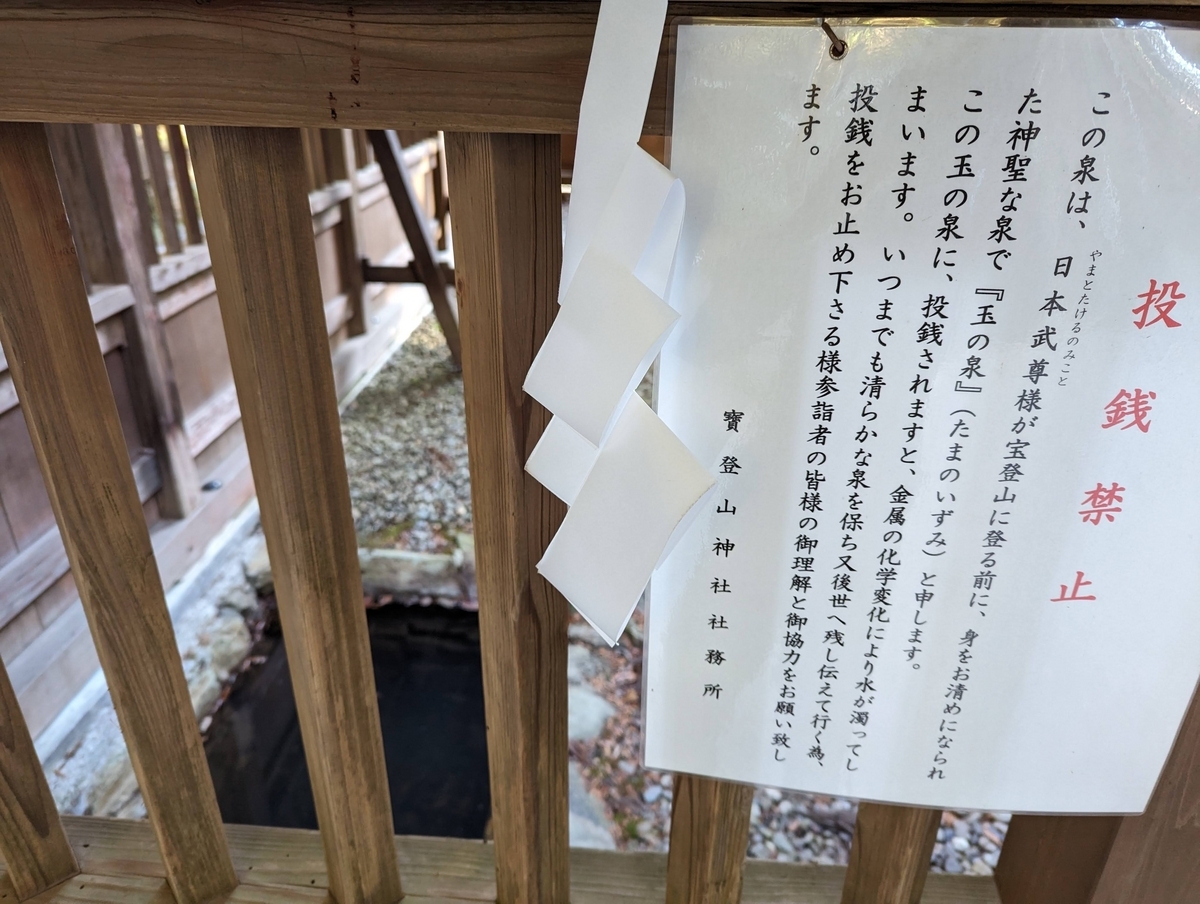 投銭禁止
この泉は、日本武尊様が宝登山に登る前に、身をお清めになられ
やまとたけるのみこと
た神聖な泉で『玉の泉』（たまのいずみ）と申します。
この玉の泉に、投銭されますと、金属の化学変化により水が濁ってし
まいます。いつまでも清らかな泉を保ち又後世へ残し伝えて行く為、
投銭をお止め下さる様参詣者の皆様の御理解と御協力をお願い致し
ます。
寶登山神社社務所